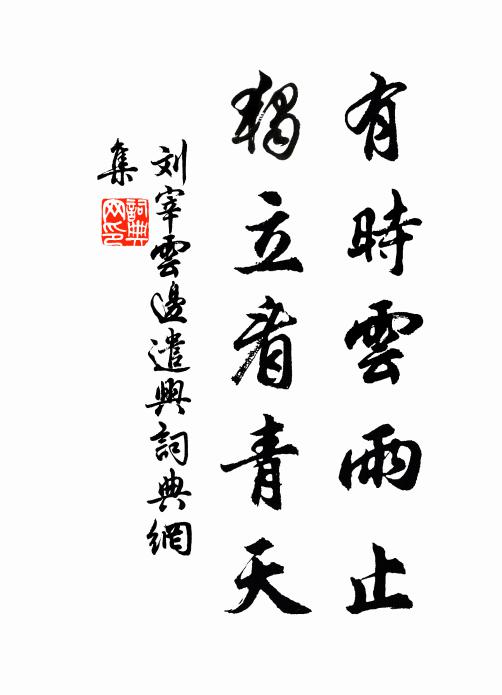 有時雲雨止
獨立看青天
刘宰雲邊遣興詞典網
集
詞典
网印